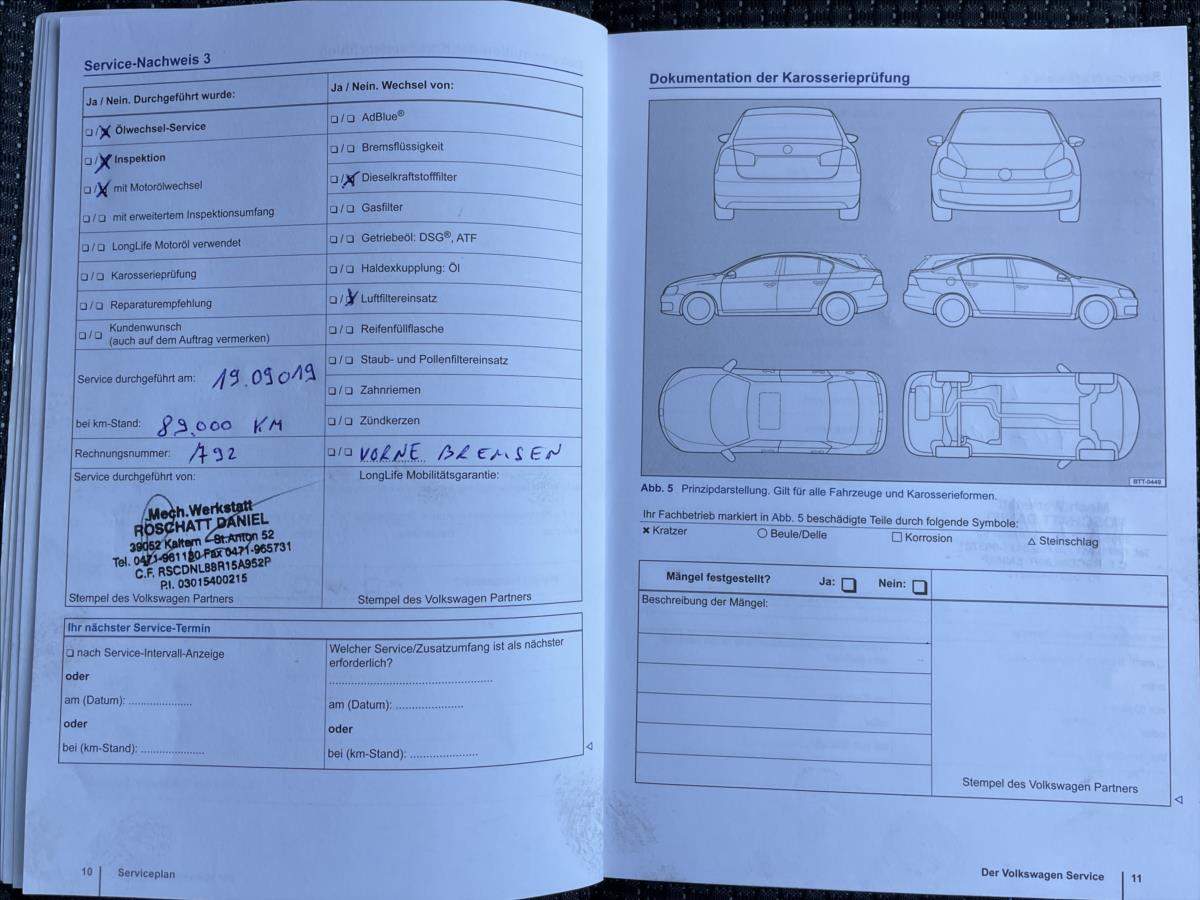 Service-Nachweis 3
Ja / Nein. Durchgeführt wurde:
❏ / ❏ Ölwechsel-Service
❏ / ❏ Inspektion
❏ / ❏ mit Motorölwechsel
❏ / ❏ mit erweitertem Inspektionsumfang
❏ / ❏ LongLife Motoröl verwendet
❏ / ❏ Karosserieprüfung
❏ / ❏ Reparaturempfehlung
❏ / ❏ Kundenwunsch
(auch auf dem Auftrag vermerken)
Service durchgeführt am: 19.09019
bei km-Stand: 89.000 KM
Rechnungsnummer: 792
Service durchgeführt von:
Mech.Werkstatt
ROSCHATT DANIEL
39052 Kaltern - St.Anton 52
Tel. 0471-961180 Fax 0471-965731
C.F. RSCDNL88R15A952P
P.I. 03015400215
Stempel des Volkswagen Partners
Ja / Nein. Wechsel von:
❏ / ❏ AdBlue®
❏ / ❏ Bremsflüssigkeit
❏ / ❏ Dieselkraftstofffilter
❏ / ❏ Gasfilter
❏ / ❏ Getriebeöl: DSG®, ATF
❏ / ❏ Haldexkupplung: Öl
❏ / ❏ Luftfiltereinsatz
❏ / ❏ Reifenfüllflasche
❏ / ❏ Staub- und Pollenfiltereinsatz
❏ / ❏ Zahnriemen
❏ / ❏ Zündkerzen
❏ / ❏ VORNE BREMSEN
LongLife Mobilitätsgarantie:
Stempel des Volkswagen Partners
Ihr nächster Service-Termin
❏ nach Service-Intervall-Anzeige
oder
am (Datum): ....................
oder
bei (km-Stand): ....................
Welcher Service/Zusatzumfang ist als nächster
erforderlich?
....................................................
am (Datum): .....................
oder
bei (km-Stand): .....................
10 Serviceplan
Dokumentation der Karosserieprüfung
BTT-0449
Abb. 5 Prinzipdarstellung. Gilt für alle Fahrzeuge und Karosserieformen.
Ihr Fachbetrieb markiert in Abb. 5 beschädigte Teile durch folgende Symbole:
× Kratzer ○ Beule/Delle □ Korrosion △ Steinschlag
Mängel festgestellt? Ja: ❏ Nein: ❏
Beschreibung der Mängel:
Stempel des Volkswagen Partners
Der Volkswagen Service 11